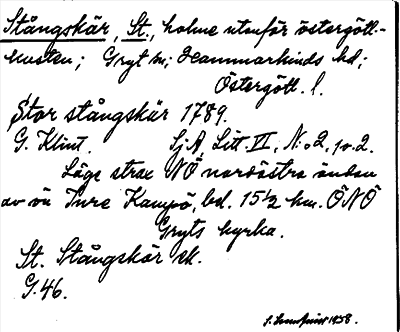 Stångskär, St., holme utanför östergött.-
kusten; Gryt sn; Hammarkinds hd;
Östergötl. l.
Stor stångskär 1789.
G. Klint. Sj.A. Litt. II, N:o 2, 10.2.
Läge strax NÖ nordöstra ändan
av ön Ture Kampö, bel. 15½ km. ÖNÖ
Gryts kyrka.
St. Stångskär ek.
G.46.
1958.